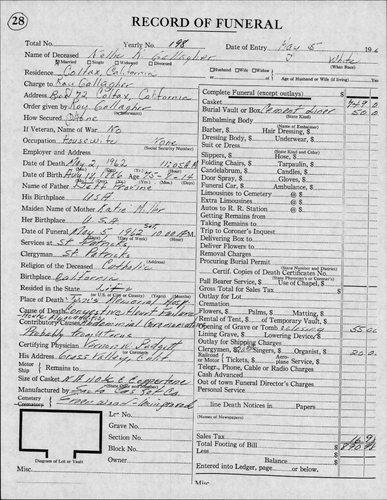 28
RECORD OF FUNERAL
Total No. Yearly No. 198 Date of Entry May 5 19
Name of Deceased Nellie A. Gallagher White
(What Race)
Married Single Widowed Divorced
Residence Colfax, California
Husband Wife Widow Age of Husband or Wife (if living) Years
Charge to Roy Gallagher
Address Box 75 Colfax, California
Order given by Roy Gallagher
How Secured Phone
If Veteran, War of No
Occupation Housewife None
(Social Security Number)
Employer and Address
Date of Death May 2, 1962 11:05 AM
Date of Birth Aug 18, 1886 Age 75-8-14
Name of Father Jeff Prorine
His Birthplace USA
Maiden Name of Mother Katie Miller
Her Birthplace USA
Date of Funeral May 5, 1962 Sat 10:00 AM
Services at St Patricks
Clergyman St Patricks
Religion of the Deceased Catholic
Birthplace California
Resided in the State Life
Place of Death Memorial Hosp
Cause of Death Congestive Heart Failure
Contributory Causes Abdominal Carcinomatosis
Probably
Certifying Physician Vernon W. Padgett
His Address Grass Valley, Calif
Remains to
Motor
Ship
Size of Casket
Manufactured by
Cemetery
Crematory Greenwood
Lot No.
Grave No.
Section No.
Block No.
Owner
Diagram of Lot or Vault
Misc.
Complete Funeral (except outlays) $
Casket 449 0
Burial Vault or Box Cement liner 50 0
(State Kind)
Embalming Body
(Name of Embalmer)
Barber, $ Hair Dressing, $
Dressing Body, $ Underwear, $
Suit or Dress
(State Kind and Color)
Slippers, $ Hose, $
Folding Chairs, $ Tarpaulin, $
Candelabrum, $ Candles, $
Door Spray, $ Gloves, $
Funeral Car, $ Ambulance, $
Limousines to Cemetery @ $
Extra Limousines @ $
Autos to R. R. Station @ $
Getting Remains from
Taking Remains to
Trip to Coroner's Inquest
Delivering Box to
Deliver Flowers to
Removal Charges
Procuring Burial Permit
(State Number and District)
Certif. Copies of Death Certificates No.
Pall Bearer Service, $ Use of Chapel, $
Gross Total for Sales Tax $
Outlay for Lot
Cremation
Flowers, $ Palms, $
Rental of Tent, $ of Temporary Vault, $
Opening of Grave or Tomb 55 00
Lining Grave, $ Lowering Device, $
Outlay for Shipping Charges
Clergymen, $ Singers, $ Organist, $ 20 0
Railroad or Motor Tickets, $ Aeroplane Service, $
Telegr., Phone, Cable or Radio Charges
Cash Advanced
Out of town Funeral Director's Charges
Personal Service
line Death Notices in Papers
(Names of Newspapers)
Sales Tax 16 96
Total Footing of Bill $
Less
Balance $
Entered into Ledger, page or below.
Misc: